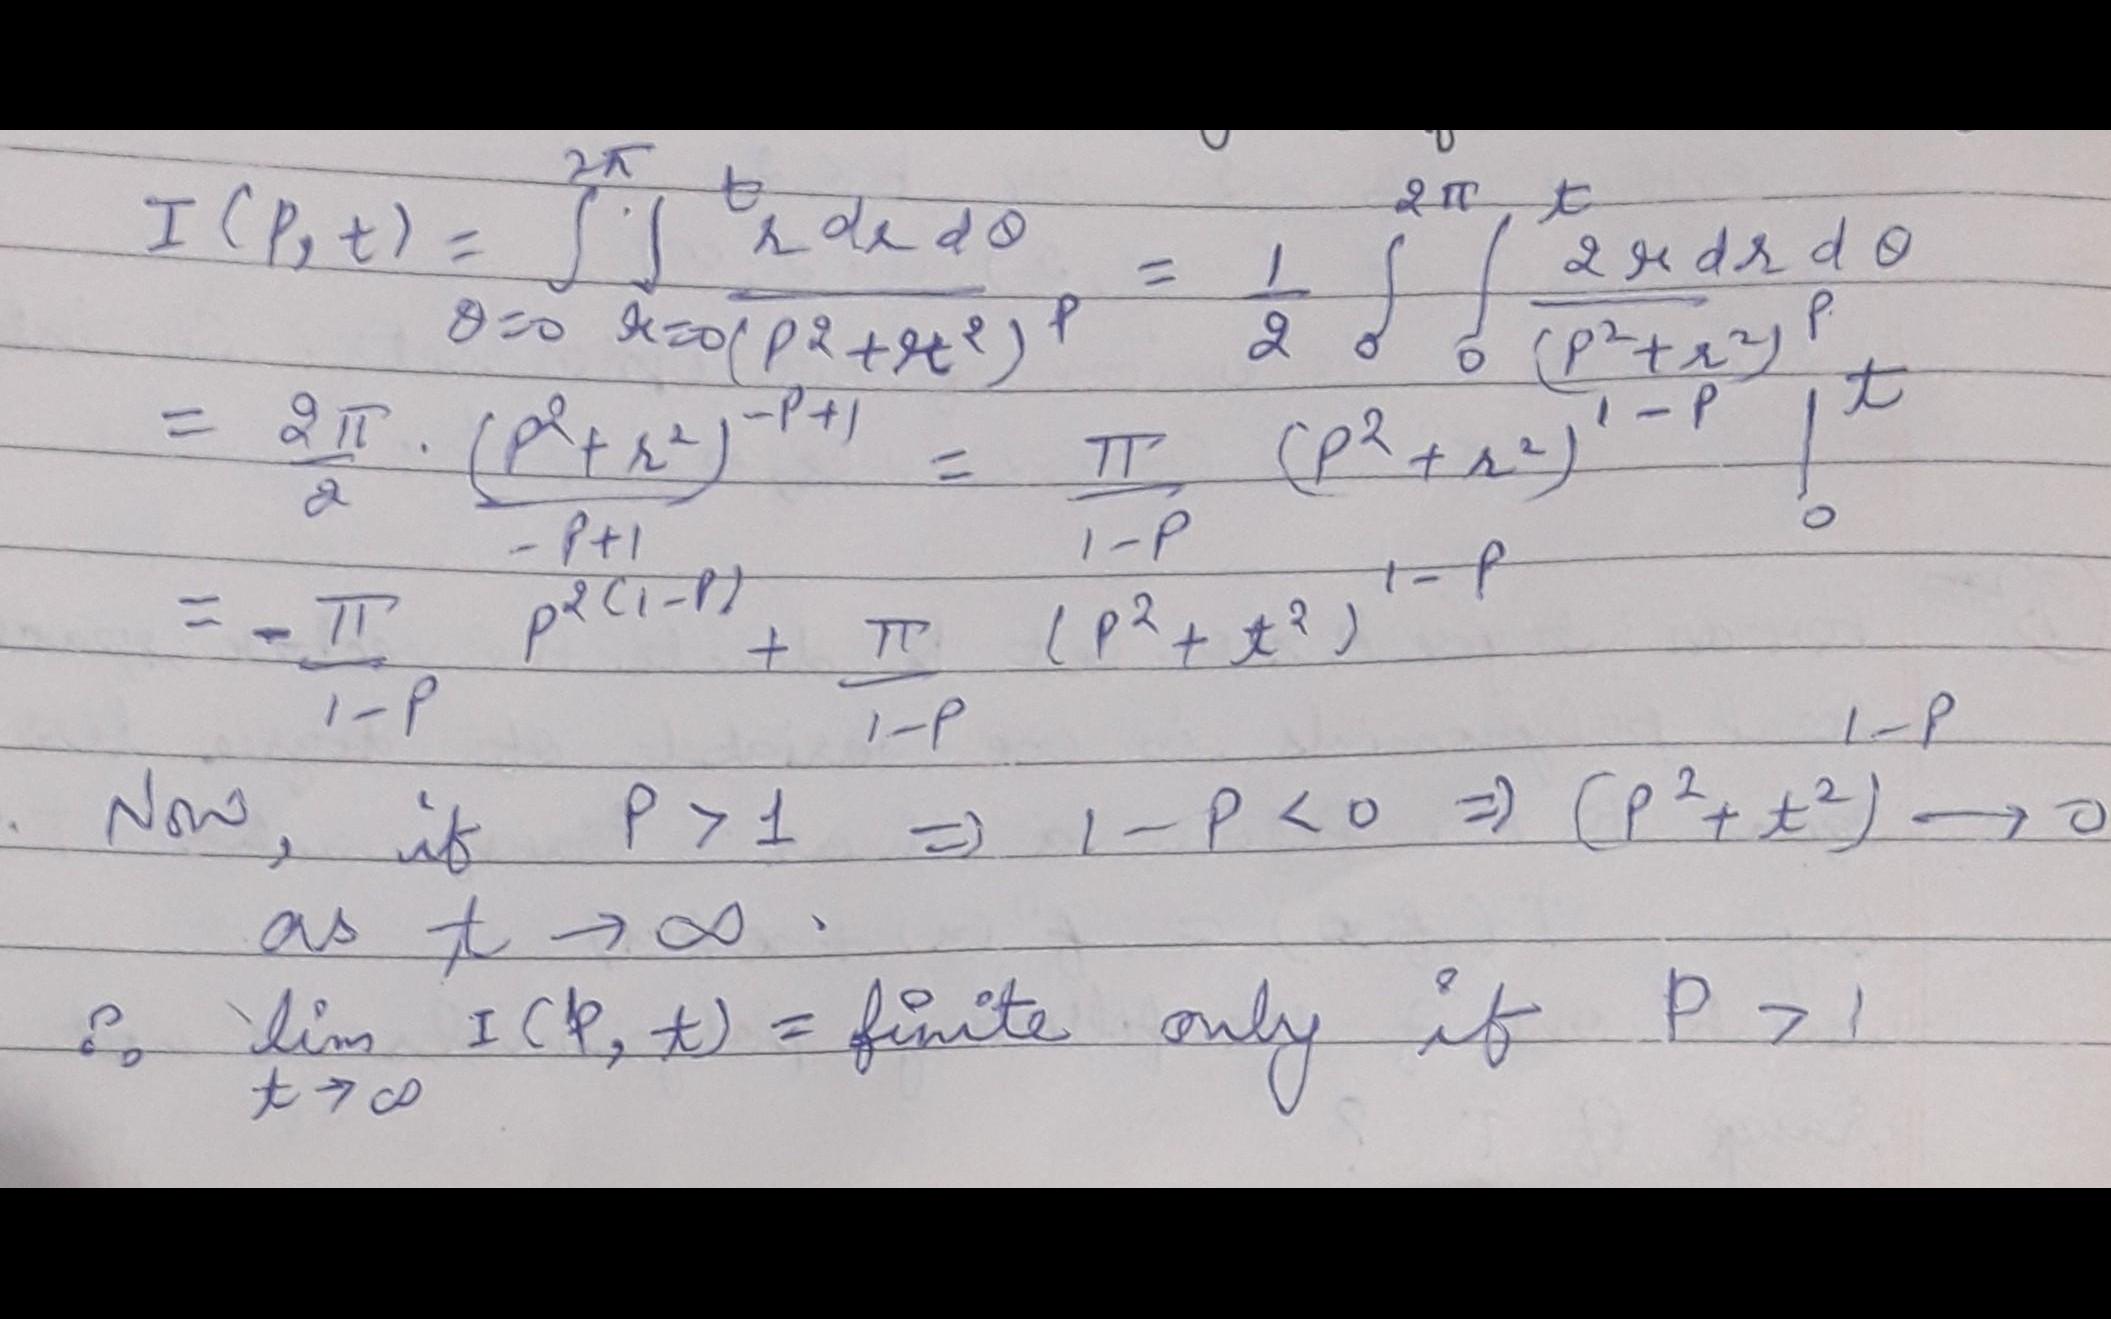 I(P,t) = ∫_{θ=0}^{2π} ∫_{r=0}^{t} r dr dθ / (P² + r²)^P = 1/2 ∫_0^{2π} ∫_0^t 2r dr dθ / (P² + r²)^P
= 2π/2 · (P² + r²)^{-P+1} / (-P+1) = π/(1-P) (P² + r²)^{1-P} |_0^t
= - π/(1-P) P^{2(1-P)} + π/(1-P) (P² + t²)^{1-P}
Now, if P > 1 ⇒ 1-P < 0 ⇒ (P² + t²)^{1-P} → 0
as t → ∞.
∴ lim_{t→∞} I(P,t) = finite only if P > 1